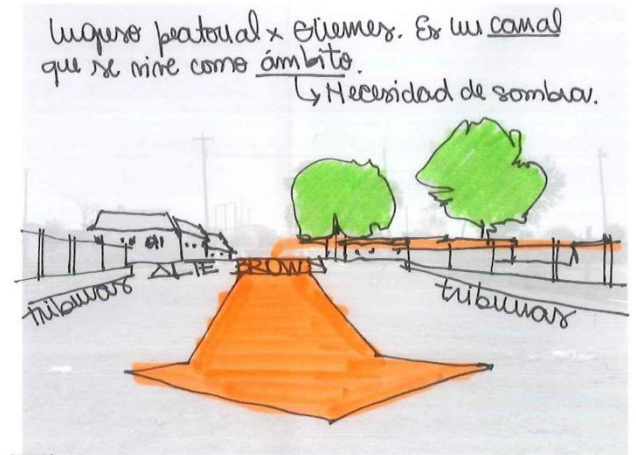 Ingreso peatonal x Güemes. Es un canal
que se vive como ámbito.
↳ Necesidad de sombra.
ALTE BROWN
tribunas
tribunas